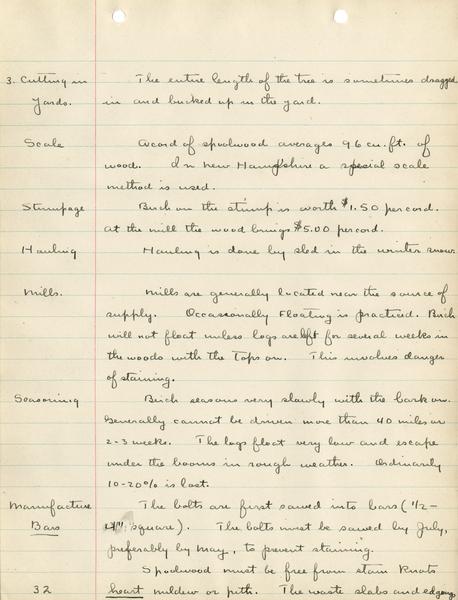 3. Cutting in The entire length of the tree is sometimes dragged
Yards. in and bucked up in the yard.
Scale A cord of spoolwood averages 96 cu. ft. of
wood. In New Hampshire a special scale
method is used.
Stumpage Birch on the stump is worth $1.50 per cord.
At the mill the wood brings $5.00 per cord.
Hauling Hauling is done by sled in the winter snow.
Mills. Mills are generally located near the source of
supply. Occasionally Floating is practiced. Birch
will not float unless logs are left for several weeks in
the woods with the Tops on. This involves danger
of staining.
Seasoning Birch seasons very slowly with the bark on.
Generally cannot be driven more than 40 miles or
2-3 weeks. The logs float very low and escape
under the booms in rough weather. Ordinarily
10-20% is lost.
Manufacture The bolts are first sawed into bars (1/2-
Bars 4" square). The bolts must be sawed by July,
preferably by May, to prevent staining.
Spoolwood must be free from stain knots
32 heart mildew or pith. The waste slabs and edgings